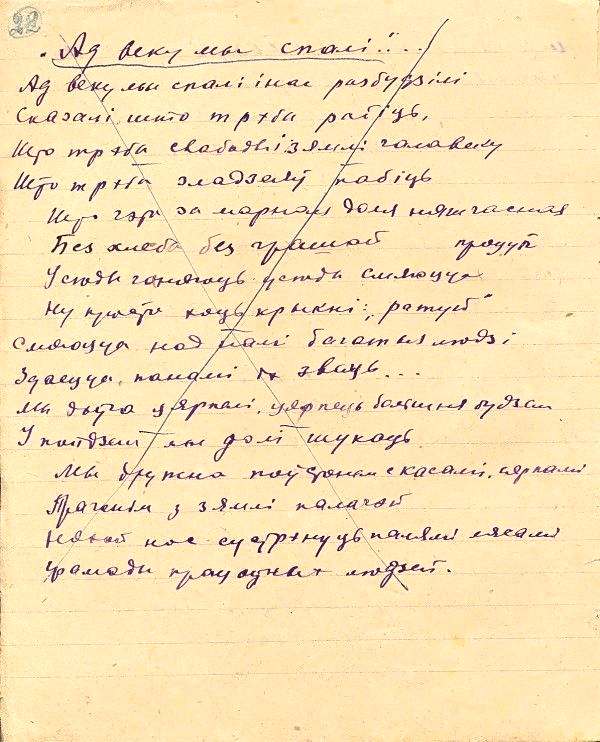 22
"Ад веку мы спалі"...
Ад веку мы спалі і нас разбудзілі
Сказалі, што трэба рабіць,
Што трэба свабоды і зямлі чалавеку
Што трэба зладзеяў пабіць
Што гэта за марная доля няшчасная
Без хлеба без грашай
Усюды гоняюць усюды смяюцца
Ну проста хоць крыкні: „ратуй"
Смяюцца над намі багатыя людзі
Здаецца, панамі іх звяць...
Мы доўга цярпелі, цярпець больш ня будзем
І пойдзем мы долі шукаць
Мы дружна паўстанем с касамі, сярпамі
Прагонім з зямлі палачой
Няхай нас сустрэнуць палямі лясамі
Грамады працоўных людзей.